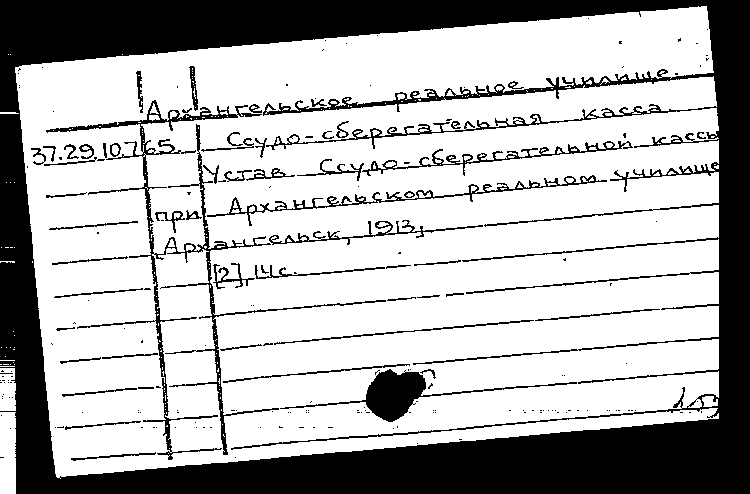 Архангельское реальное училище.
37.29.10.765. Ссудо-сберегательная касса
Устав Ссудо-сберегательной кассы
при Архангельском реальном училище
Архангельск, 1913;
[2], 14 с.